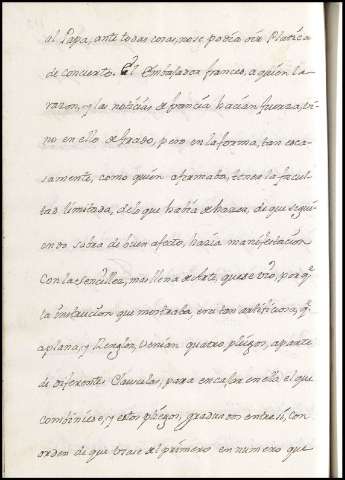 al Papa, ante todas cosas, no se podía oir Platica
de concierto. El Embajador frances, a quien la
razon, y las noticias de francia hacian fuerza, vi-
no en ello de grado, pero en la forma, tan esca-
samente, como quien afirmaba, tener la facul-
tad limitada, de lo que había de hacer, de que segui
endo sobra de buen afecto, hazia manifestacion
Con la sencillez, mas llena de Arte, que se vio, por q.e
la instruccion que mostraba, era tan artificiosa, q.
a plana, y Renglon, Venian quatro pliegos, aparte
de diferentes Clausulas, para encajar en ella el que
combiniese, y estos pliegos, graduados entre si, con
orden de que trase el primero en numero que